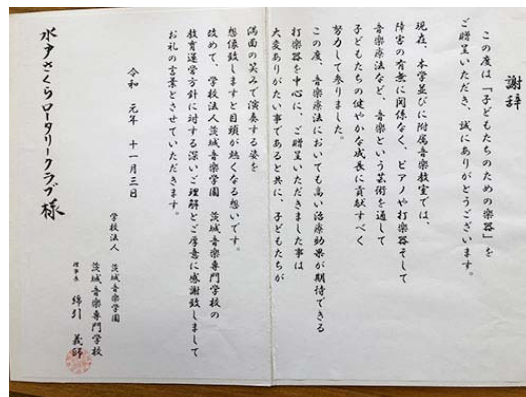 謝辞
この度は「子どもたちのための楽器」を
ご贈呈いただき、誠にありがとうございます。
現在、本学並びに附属音楽教室では、
障害の有無に関係なく、ピアノや打楽器そして
音楽療法など、音楽という芸術を通して
子どもたちの健やかな成長に貢献すべく
努力して参りました。
この度、音楽療法においても高い治療効果が期待できる
打楽器を中心に、ご贈呈いただきました事は
大変ありがたい事であると共に、子どもたちが
満面の笑みで演奏する姿を
想像致しますと目頭が熱くなる想いです。
改めて、学校法人茨城音楽学園 茨城音楽専門学校の
教育運営方針に対する深いご理解とご厚意に感謝致しまして
お礼の言葉とさせていただきます。
令和 元年 十一月三日
学校法人 茨城音楽学園
茨城音楽専門学校
理事長 綿引 義師
水戸さくらロータリークラブ様